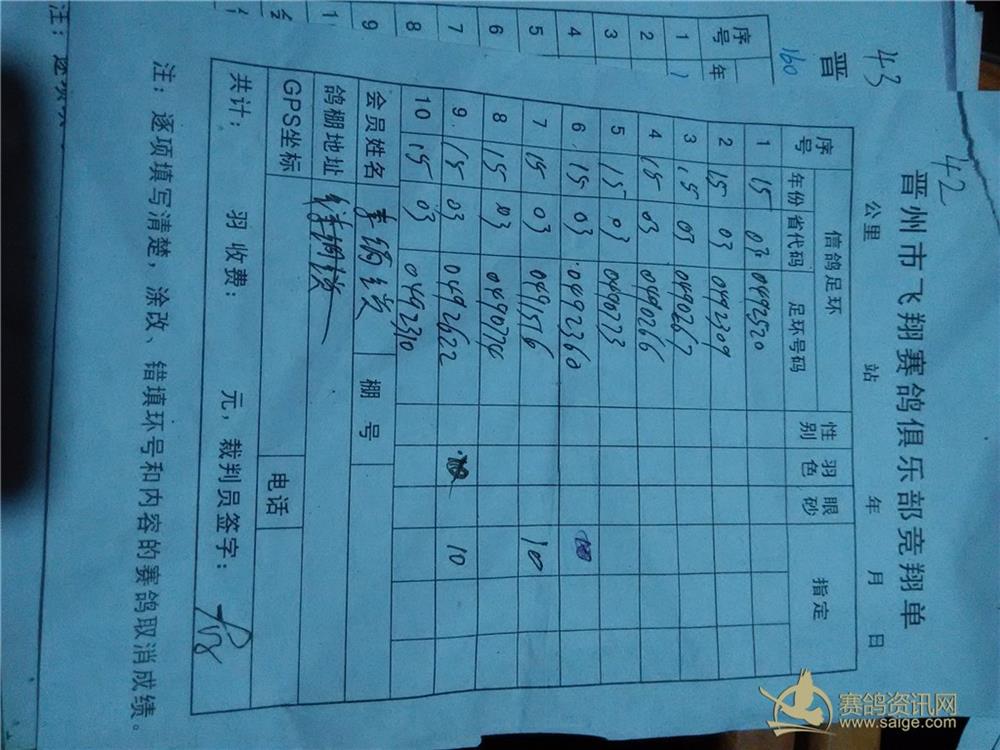 42
晋州市飞翔赛鸽俱乐部竞翔单
公里 站 年 月 日
序号 信鸽足环 性别 羽色 眼砂 指定
年份 省代码 足环号码
1 15 03 0492520
2 15 03 0492309
3 15 03 0490267
4 15 03 0490266
5 15 03 0490773
6 15 03 0492360
7 15 03 0491516 100
8 15 03 0490774
9 15 03 0492622 10
10 15 03 0492310
会员姓名 棚号
鸽棚地址
GPS坐标 电话
共计： 羽 收费： 元，裁判员签字：
注：逐项填写清楚，涂改、错填环号和内容的赛鸽取消成绩。
43
160
晋
序号 年
1
2
3
4
5
6
7
8
9
注：逐项
赛鸽资讯网
www.saige.com